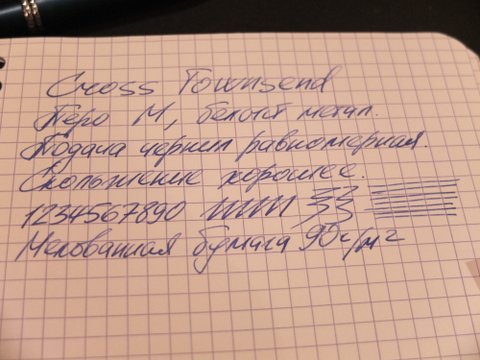 Cross Townsend
Перо М, белый метал.
Подача чернил равномерная.
Скольжение хорошее.
1234567890
Мелованная бумага 90г/м²